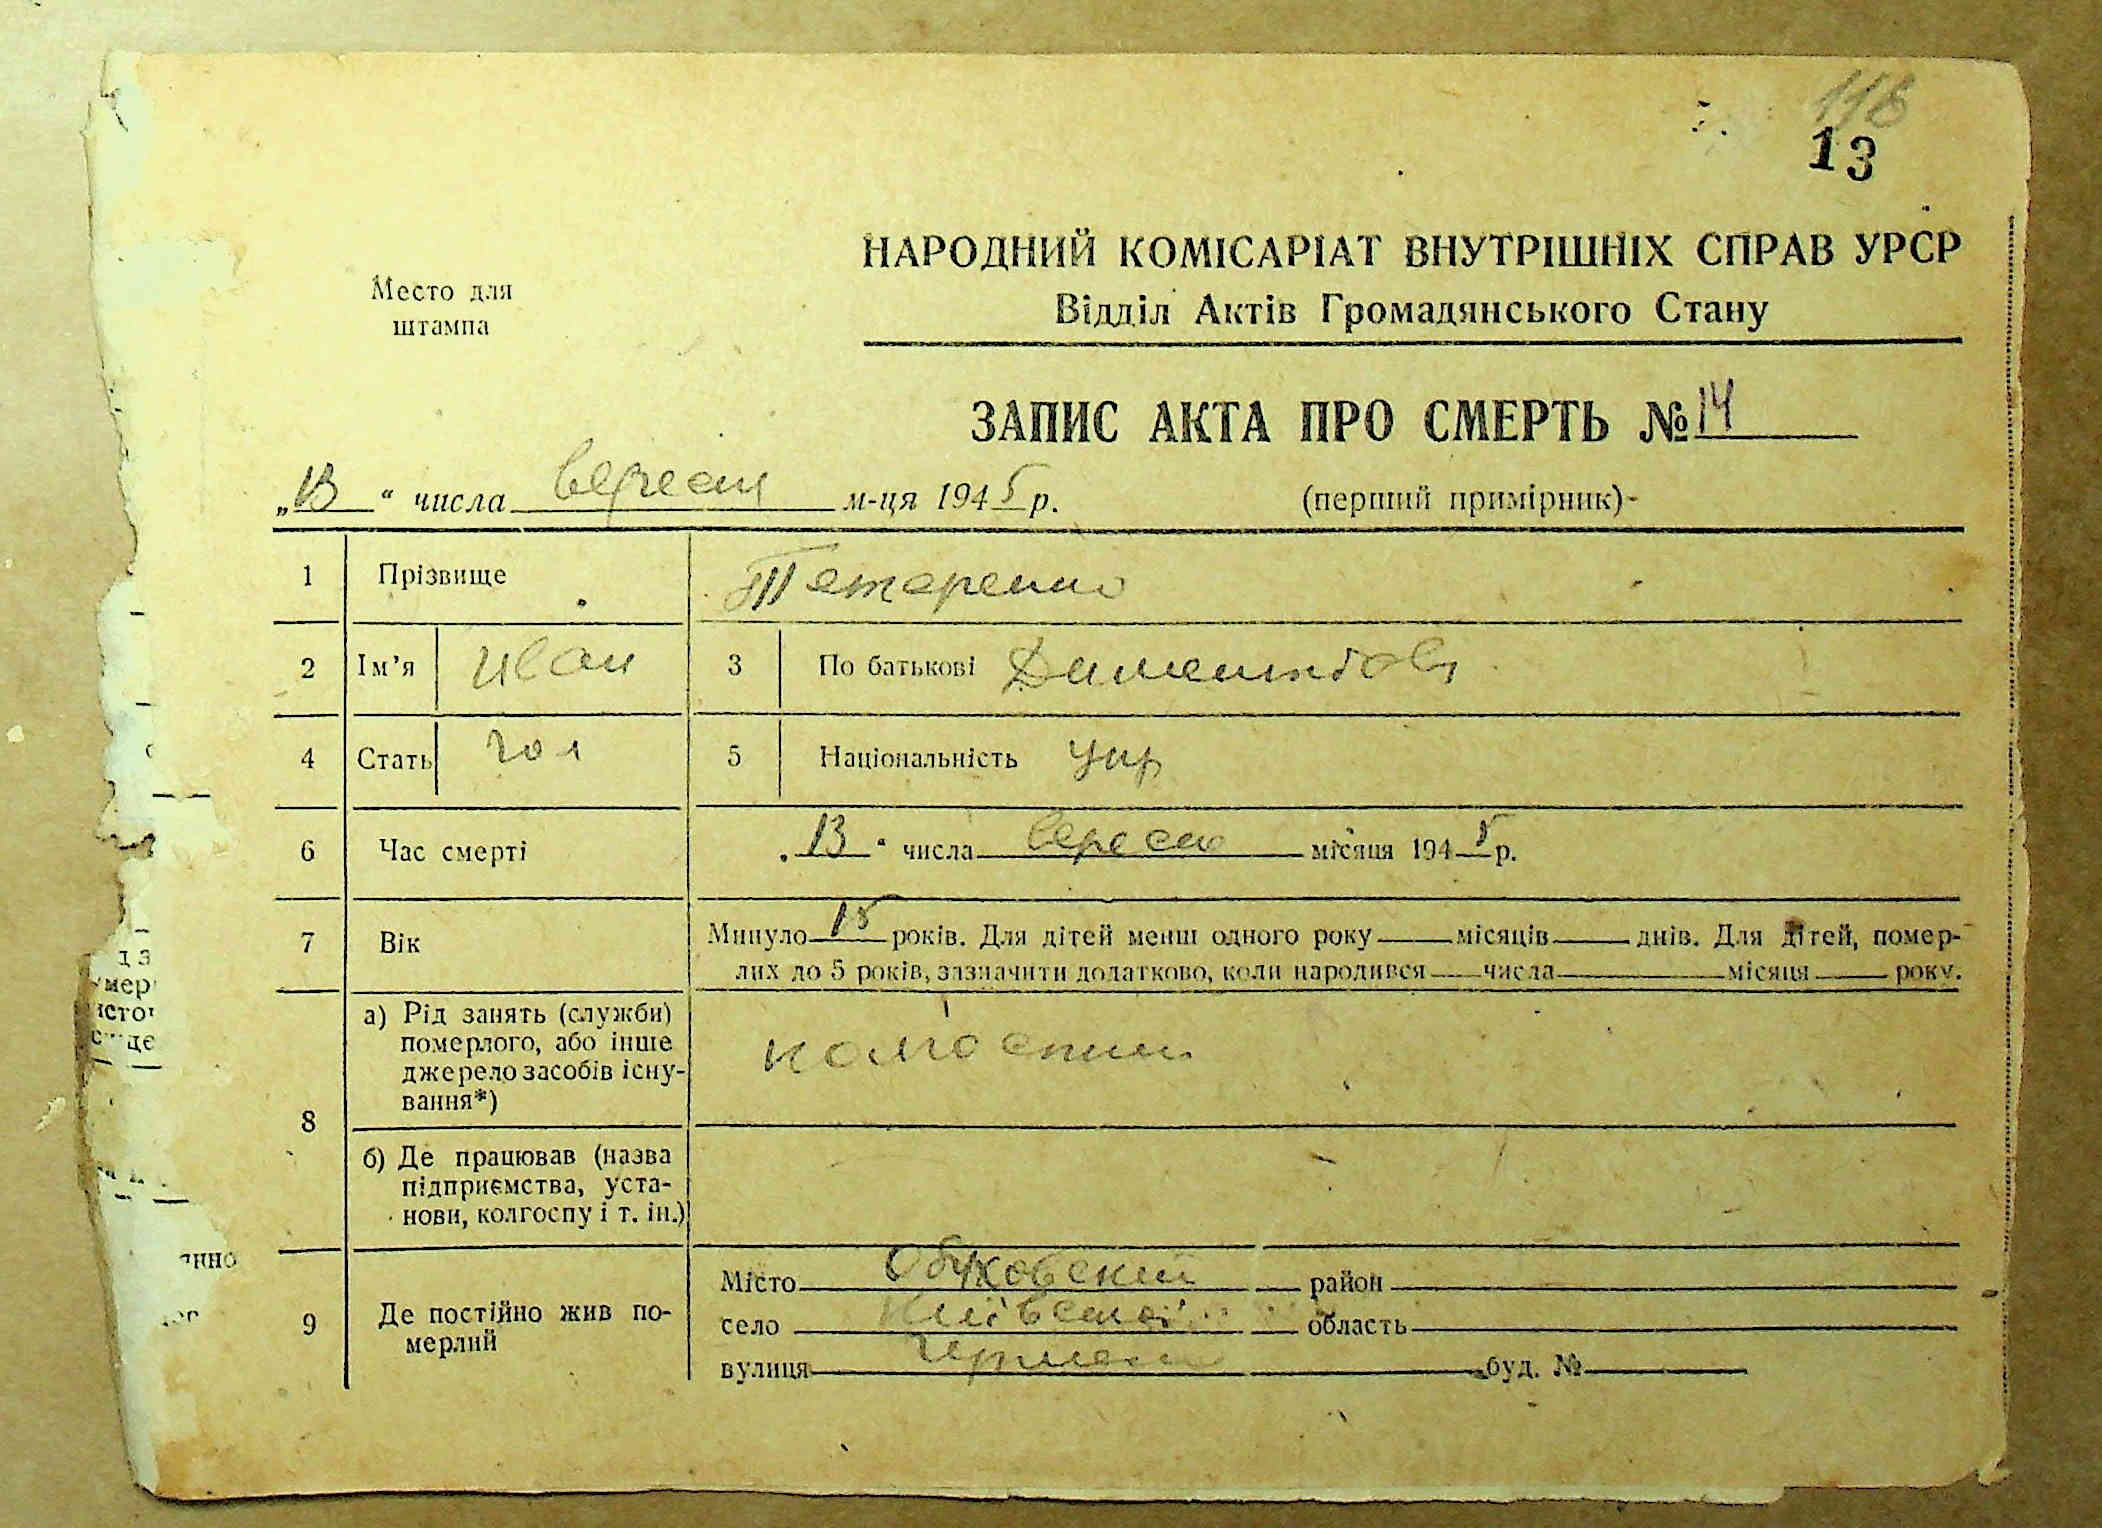 118
13
НАРОДНИЙ КОМІСАРІАТ ВНУТРІШНІХ СПРАВ УРСР
Место для
штампа
Відділ Актів Громадянського Стану
ЗАПИС АКТА ПРО СМЕРТЬ № 14
„13“ числа вересня м-ця 1945 р. (перший примірник)-
1 Прізвище Тетеренко
2 Ім’я Иван 3 По батькові
4 Стать чол 5 Національність укр
6 Час смерті „13“ числа вересня місяця 1945 р.
7 Вік Минуло 15 років. Для дітей менш одного року місяців днів. Для дітей, помер-
лих до 5 років, зазначити додатково, коли народився числа місяця року.
8 а) Рід занять (служби)
померлого, або інше
джерело засобів існу-
вання*)
колгоспник
б) Де працював (назва
підприємства, уста-
нови, колгоспу і т. ін.)
9 Де постійно жив по-
мерлий
Місто Обуховский район
село Київської область
вулиця буд. №